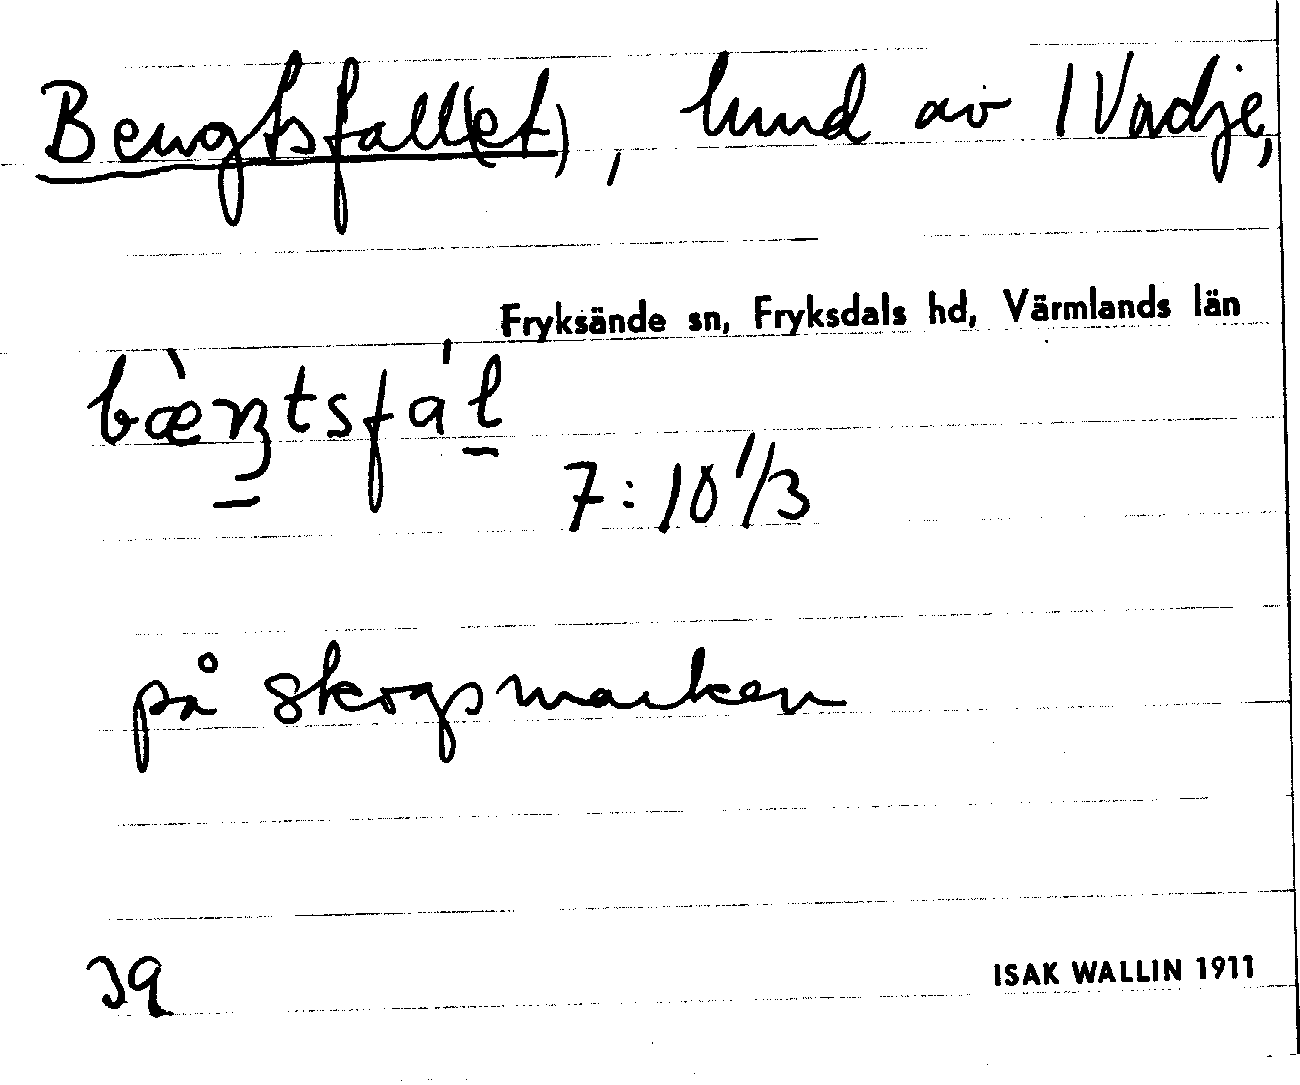 Bengtsfall(et), lund av 1 Vadje,
Fryksände sn, Fryksdals hd, Värmlands län
7:10 1/3
på skogsmarken
ISAK WALLIN 1911